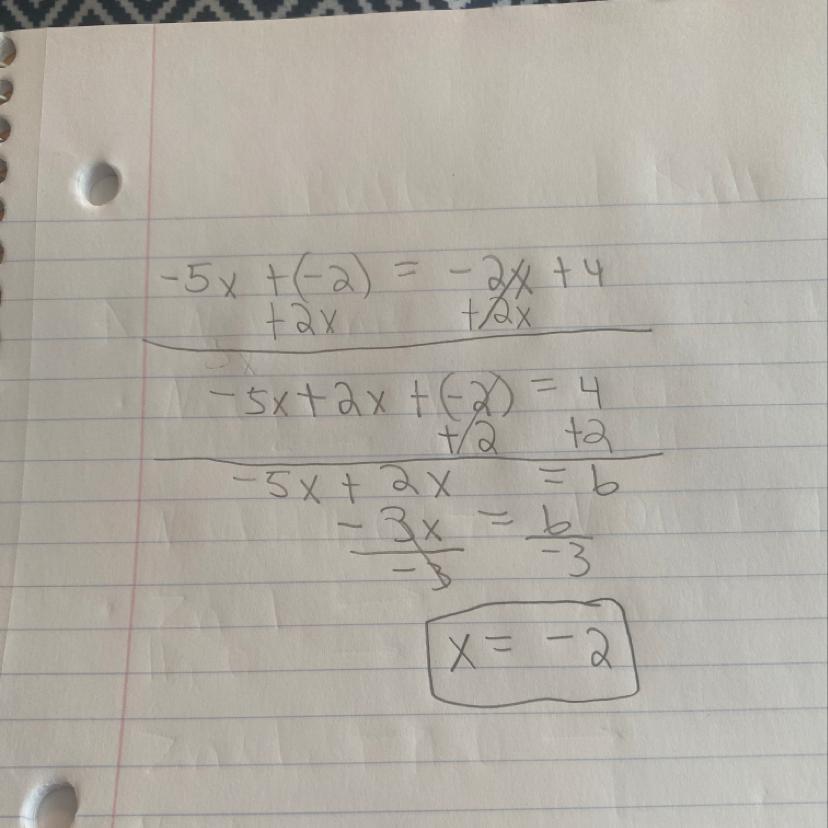 -5x +(-2) = -2x +4
+2x +2x
-5x+2x +(-2) = 4
+2 +2
-5x + 2x = 6
-3x = 6
-3 -3
x = -2